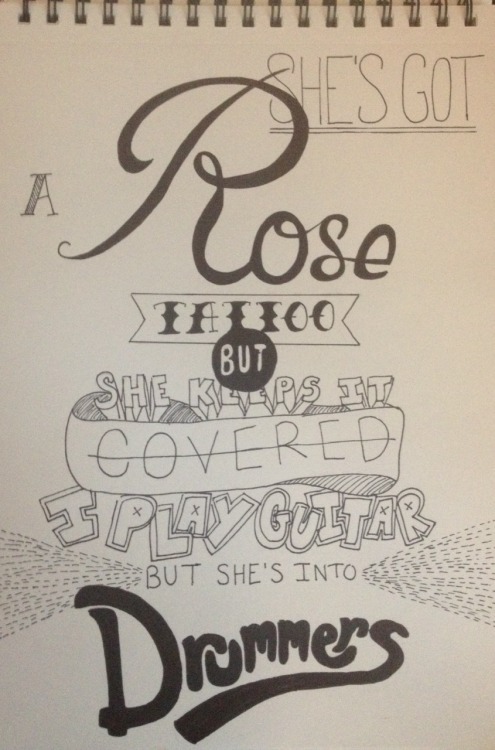 SHE'S GOT
A
Rose
TATTOO
BUT
SHE KEEPS IT
COVERED
I PLAY GUITAR
BUT SHE'S INTO
Drummers